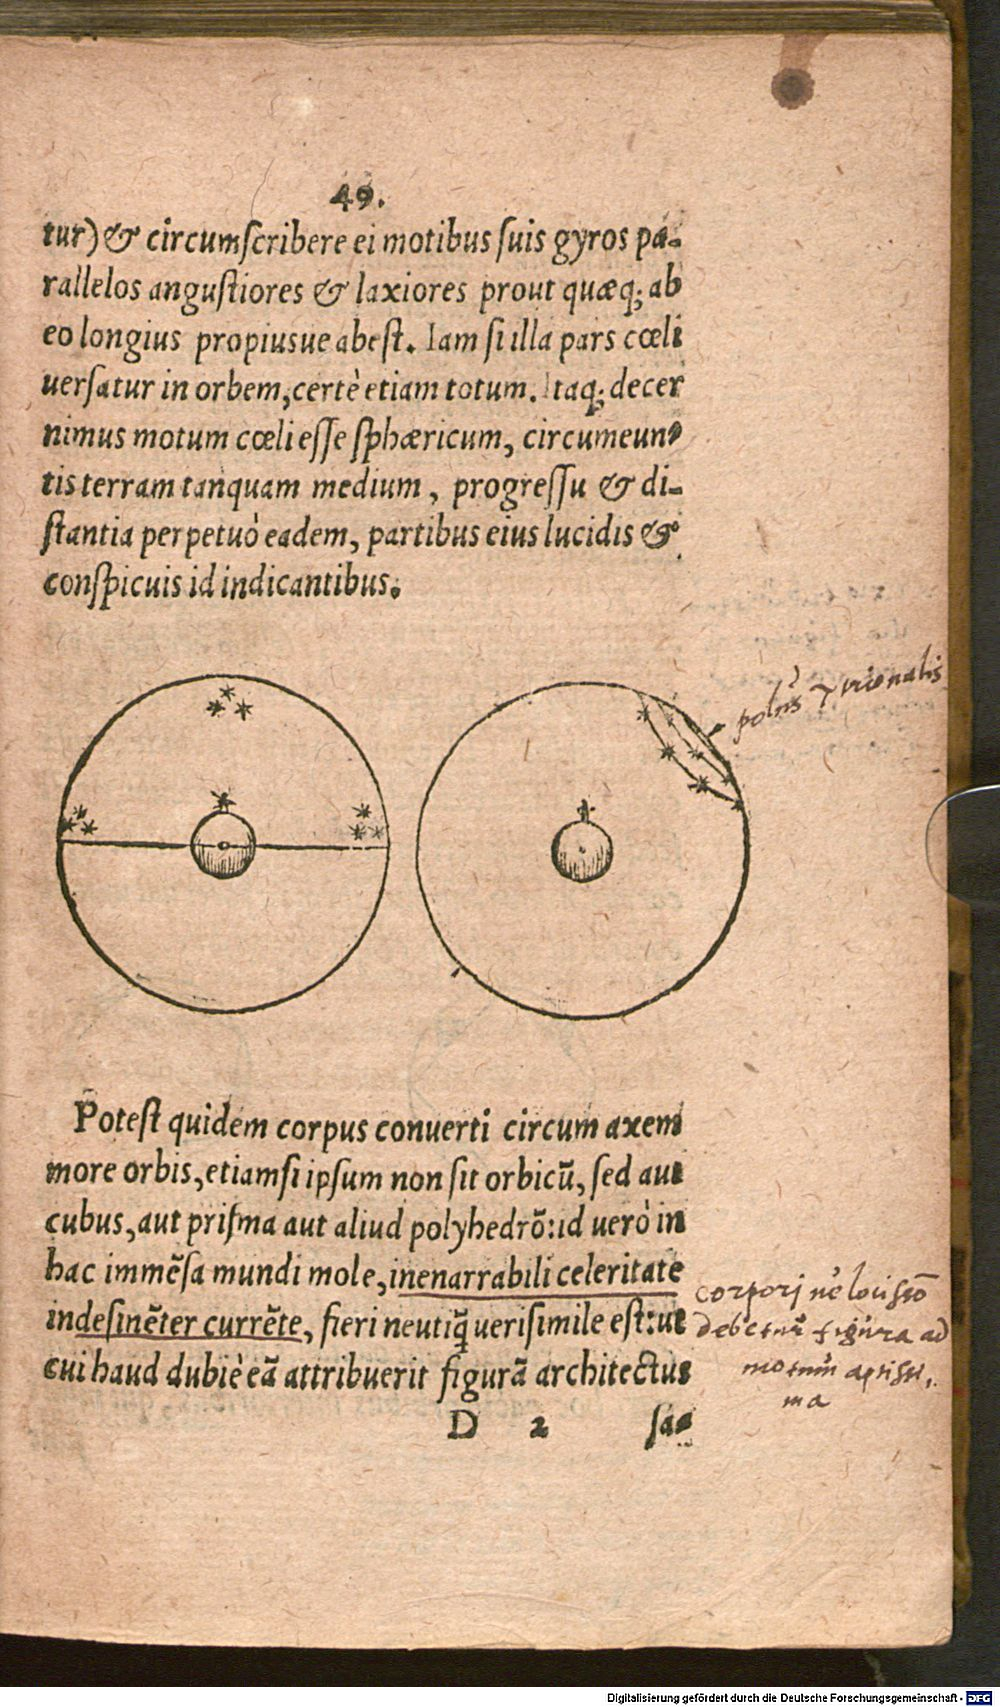 49.
tur) & circumſcribere ei motibus ſuis gyros pa-
rallelos anguſtiores & laxiores prout quæq; ab
eo longius propiusue abeſt. Iam ſi illa pars cœli
uerſatur in orbem, certè etiam totum. Itaq; decer
nimus motum cœli eſſe ſphæricum, circumeun-
tis terram tanquam medium, progreſſu & di-
ſtantia perpetuò eadem, partibus eius lucidis &
conſpicuis id indicantibus.
polus
Poteſt quidem corpus conuerti circum axem
more orbis, etiamſi ipſum non ſit orbicū, ſed aut
cubus, aut priſma aut aliud polyhedrō: id uerò in
hac immēſa mundi mole, inenarrabili celeritate
indeſinēter currēte, fieri neutiq̄ ueriſimile eſt: ut
cui haud dubiè eā attribuerit figurā architectus
corpori
debetur figura ad
motum aptissi-
ma
D 2 ſa-
Digitalisierung gefördert durch die Deutsche Forschungsgemeinschaft - DFG